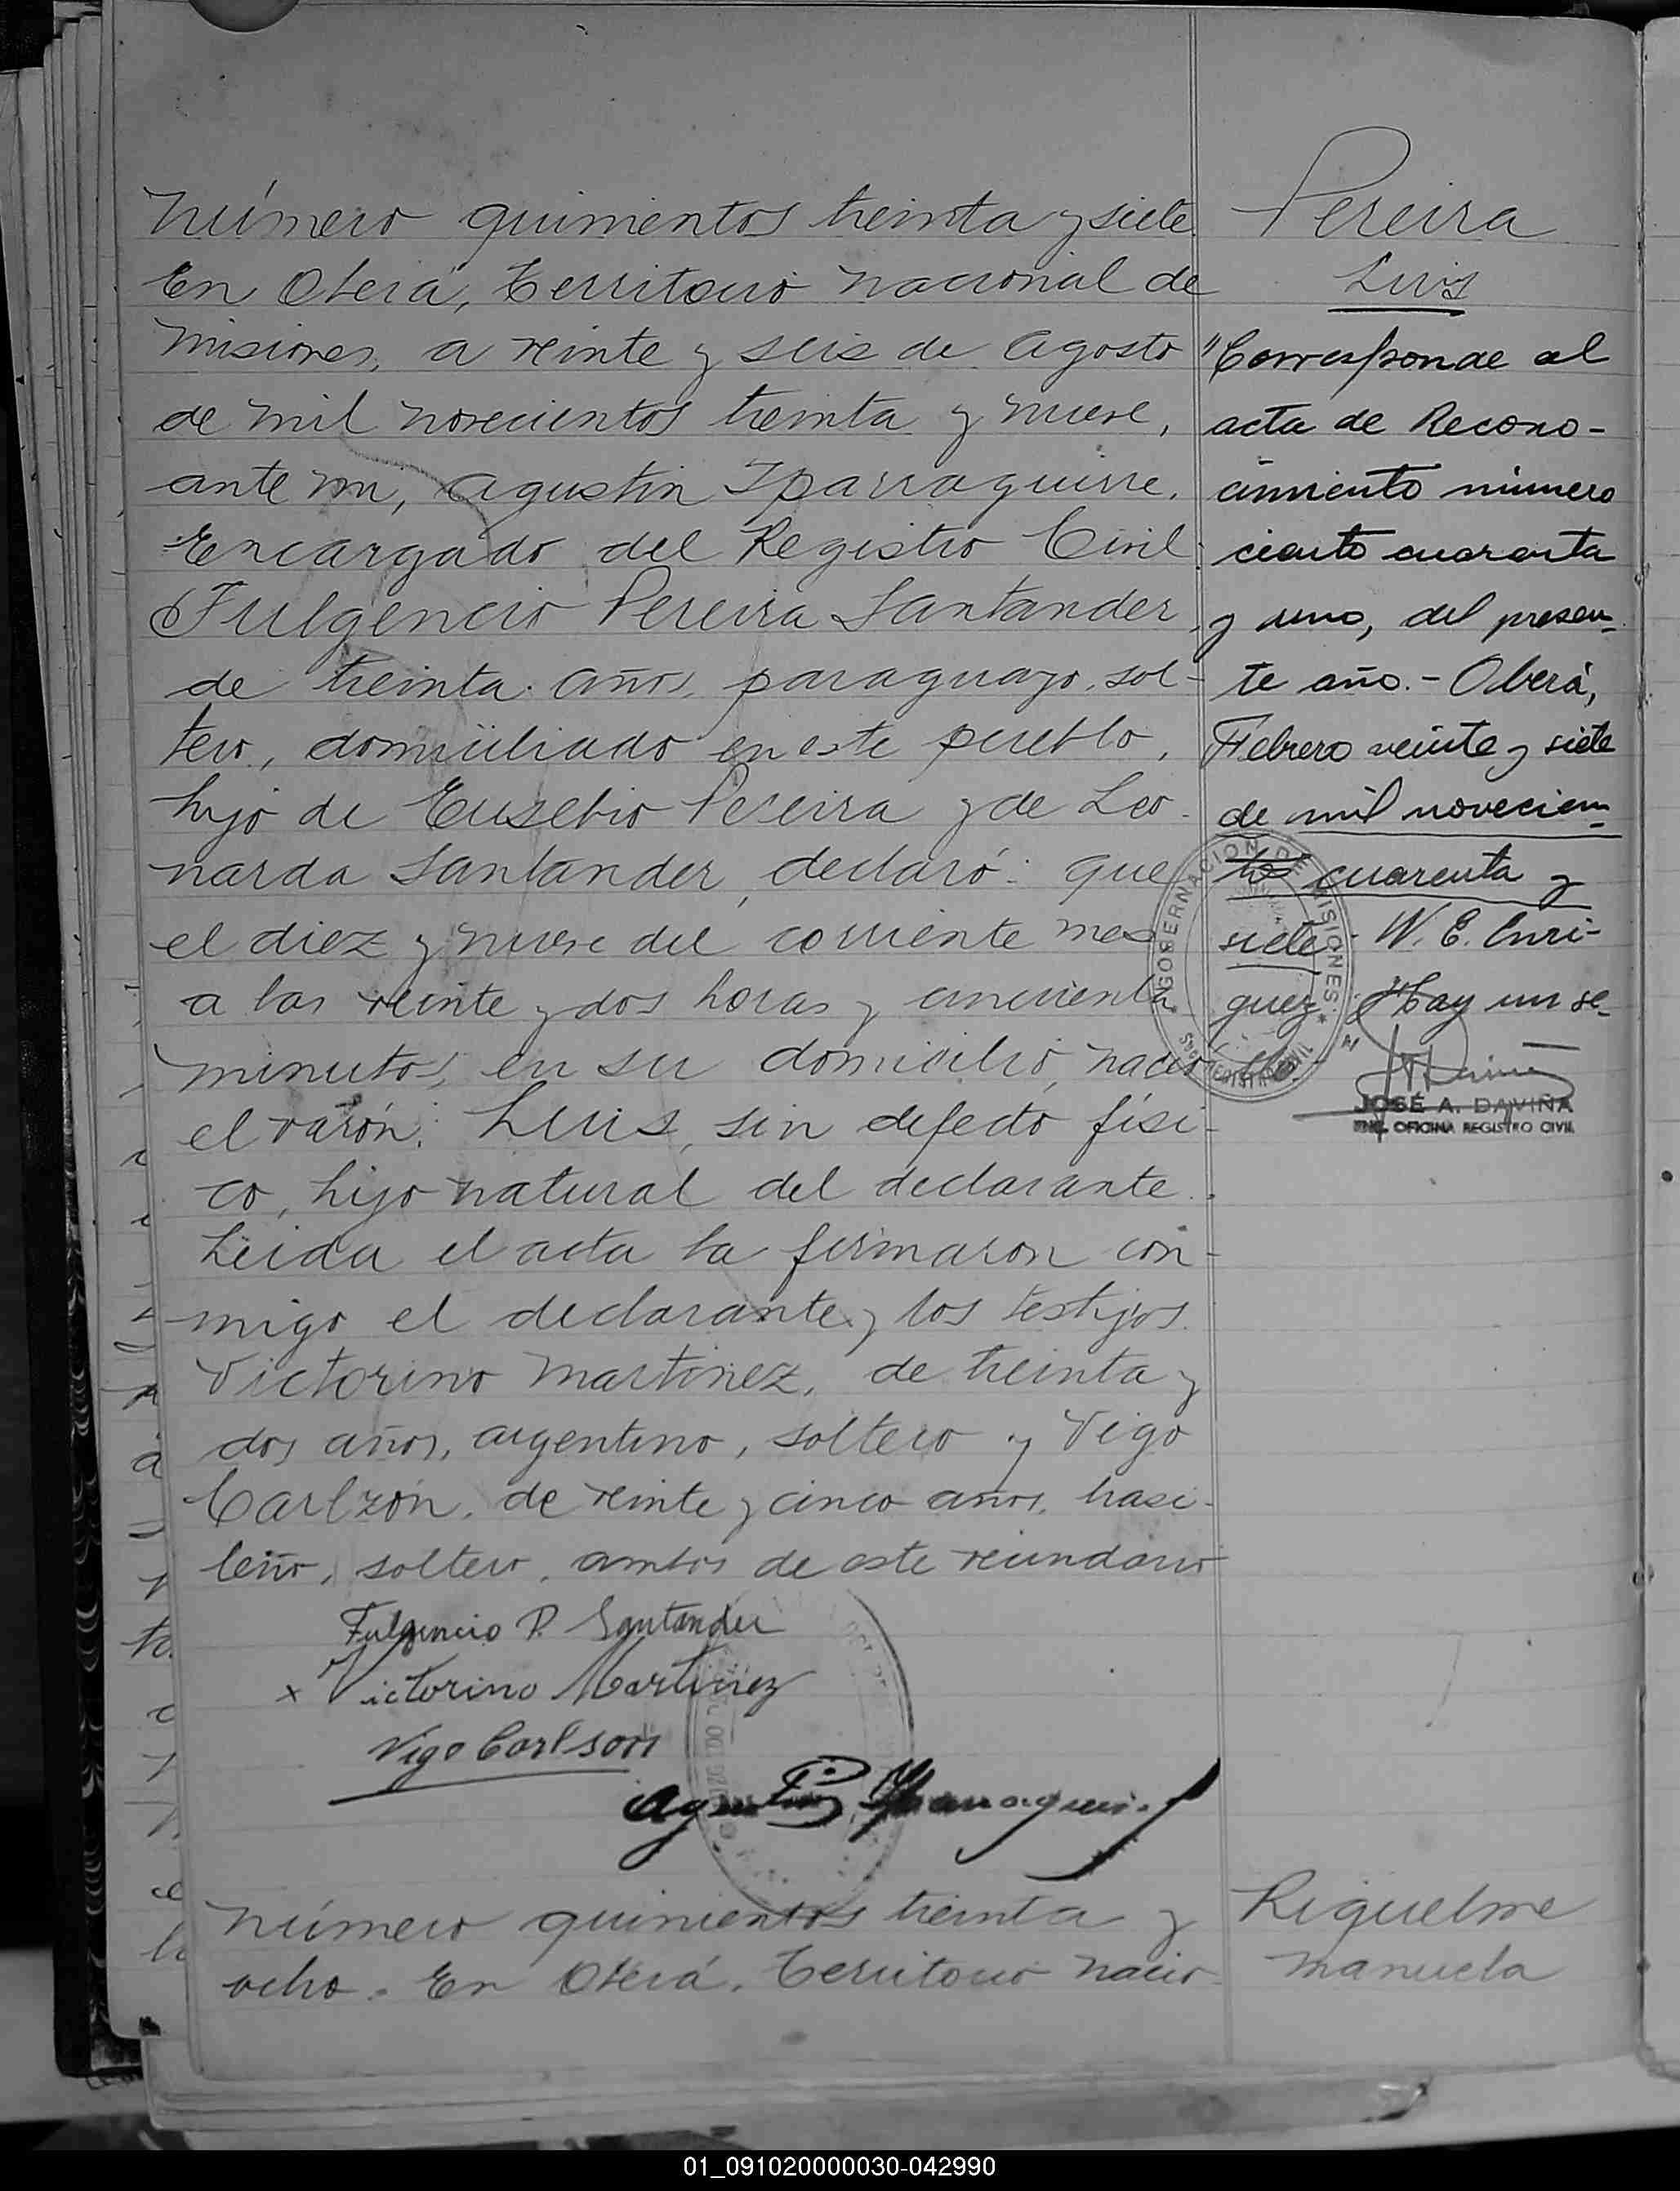 Número quinientos treinta y siete
En Oberá, Territorio Nacional de
Misiones, a veinte y seis de Agosto
de mil novecientos treinta y nueve,
ante mi, Agustín Yparraguirre,
Encargado del Registro Civil:
Fulgencio Pereira Santander,
de treinta años, paraguayo, sol-
tero, domiciliado en este pueblo,
hijo de Eusebio Pereira y de Leo-
narda Santander, declaró: que
el diez y nueve del corriente mes
a las veinte y dos horas y cincuenta
minutos, en su domicilio, nació
el varón: Luis, sin defecto físi-
co, hijo natural del declarante.
Leida el acta la firmaron con-
migo el declarante y los testigos
Victorino Martinez, de treinta y
dos años, argentino, soltero y Vigo
Carlzón, de veinte y cinco años, brasi-
leño, soltero, ambos de este vecindario
Fulgencio P. Santander
x Victorino Martinez
Vigo Carlson
Agustín Yparraguirre
Número quinientos treinta y
ocho. En Oberá, Territorio Nacio-
Pereira
Luis
"Corresponde al
acta de Recono-
cimiento número
ciento cuarenta
y uno, del presen-
te año.- Oberá,
Febrero veinte y siete
de mil novecien-
tos cuarenta y
siete. W. E. Enri-
quez. Hay un se-
llo.-
GOBERNACION DE MISIONES
JOSÉ A. DAVIÑA
ENC. OFICINA REGISTRO CIVIL
Riquelme
Manuela
01_091020000030-042990